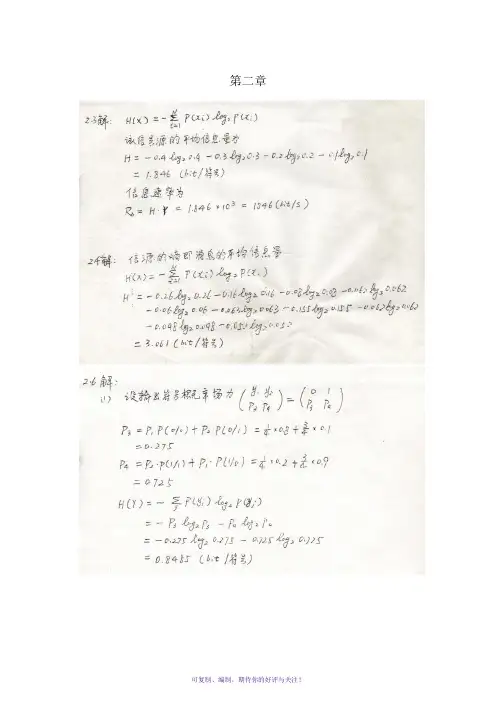 第二章
2.3解: H(X) = -∑ P(xi) log₂ P(xi)
i=1
该信息源的平均信息量为
H = -0.4 log₂ 0.4 - 0.3 log₂ 0.3 - 0.2 log₂ 0.2 - 0.1 log₂ 0.1
= 1.846 (bit/符号)
信息速率为
Rb = H·r = 1.846 ×10³ = 1846 (bit/s)
2.4解: 信源的熵即消息的平均信息量
H(X) = -∑ P(xi) log₂ P(xi)
i=1
H = -0.26 log₂ 0.26 - 0.16 log₂ 0.16 - 0.08 log₂ 0.08 - 0.062 log₂ 0.062
-0.06 log₂ 0.06 - 0.063 log₂ 0.063 - 0.155 log₂ 0.155 - 0.062 log₂ 0.062
-0.098 log₂ 0.098 - 0.052 log₂ 0.052
= 3.061 (bit/符号)
2.6 解:
(1) 设输出符号概率场为 (y₁ y₂ / P₃ P₄) = (0 1 / P₃ P₄)
P₃ = P₁ P(0/0) + P₂ P(0/1) = ¼×0.8 + ¾×0.1
= 0.275
P₄ = P₂·P(1/1) + P₁·P(1/0) = ¼×0.2 + ¾×0.9
= 0.725
H(Y) = -∑ P(yj) log₂ P(yj)
j
= -P₃ log₂ P₃ - P₄ log₂ P₄
= -0.275 log₂ 0.275 - 0.725 log₂ 0.725
= 0.8485 (bit/符号)
可复制、编制，期待你的好评与关注！